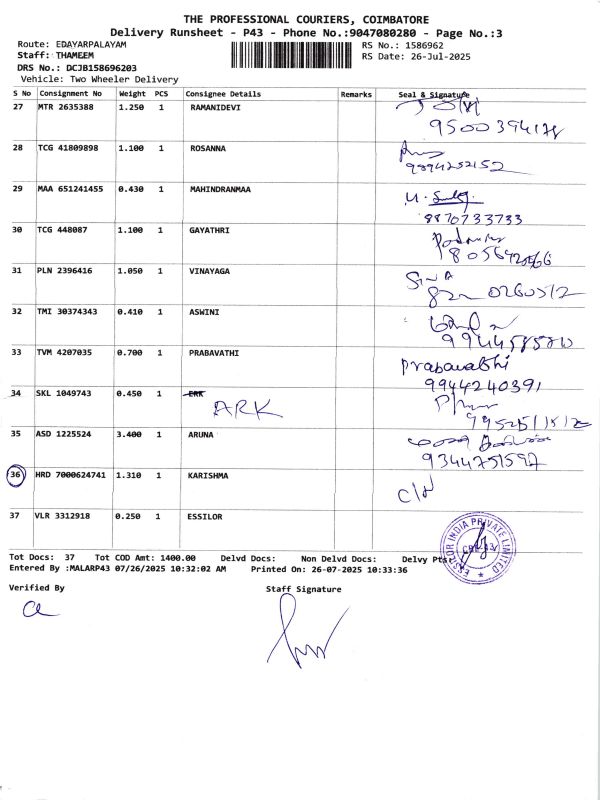 THE PROFESSIONAL COURIERS, COIMBATORE
Delivery Runsheet - P43 - Phone No.:9047080280 - Page No.:3
Route: EDAYARPALAYAM
RS No.: 1586962
Staff: THAMEEM
RS Date: 26-Jul-2025
DRS No.: DCJB158696203
Vehicle: Two Wheeler Delivery
S No Consignment No Weight PCS Consignee Details Remarks Seal & Signature
27 MTR 2635388 1.250 1 RAMANIDEVI
28 TCG 41809898 1.100 1 ROSANNA
9894252152
29 MAA 651241455 0.430 1 MAHINDRANMAA
8870733733
30 TCG 448087 1.100 1 GAYATHRI
31 PLN 2396416 1.050 1 VINAYAGA
32 TMI 30374343 0.410 1 ASWINI
33 TVM 4207035 0.700 1 PRABAVATHI
Prabavathi
9944240391
34 SKL 1049743 0.450 1 ERK
ARK
35 ASD 1225524 3.400 1 ARUNA
9344751597
36 HRD 7000624741 1.310 1 KARISHMA
37 VLR 3312918 0.250 1 ESSILOR
ESSILOR INDIA PRIVATE LIMITED
Tot Docs: 37 Tot COD Amt: 1400.00 Delvd Docs: Non Delvd Docs: Delvy Pts:
Entered By :MALARP43 07/26/2025 10:32:02 AM Printed On: 26-07-2025 10:33:36
Verified By
Staff Signature